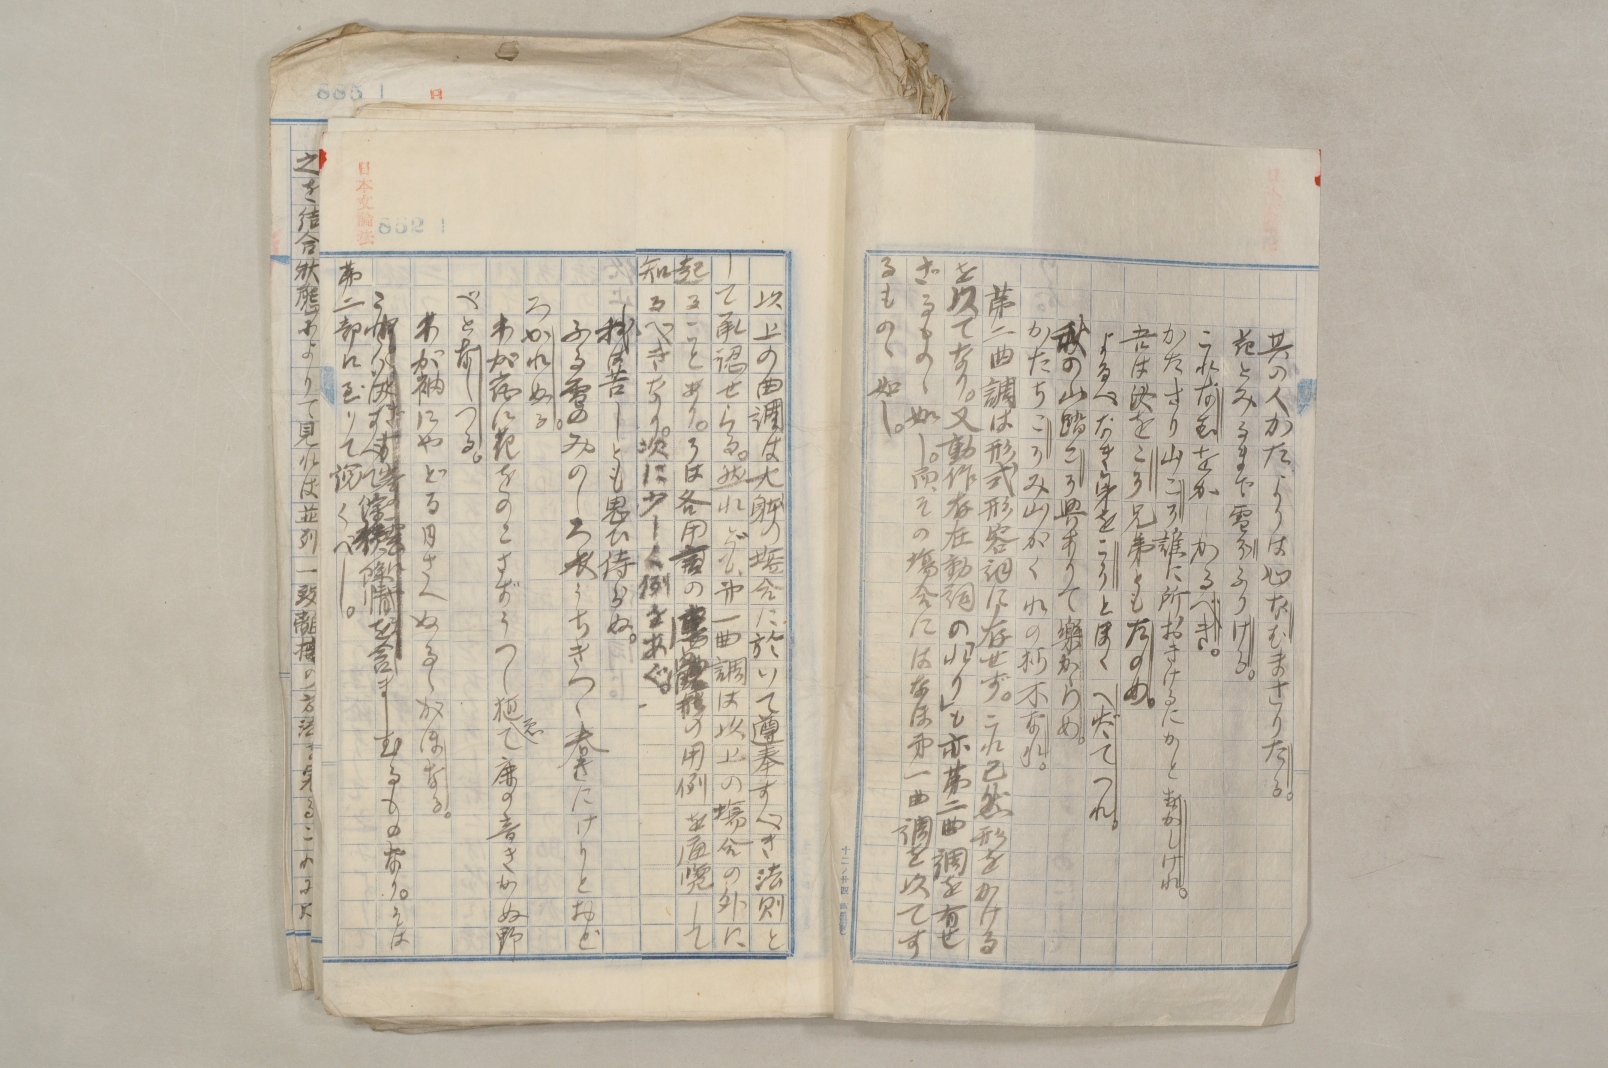 其の人かたちよりは心なむまさりたる。
花とみるまで雪ぞふりける。
これなむをかしかるべき。
かたさり山こそ誰に所おきけるにかとをかしけれ。
吾は汝をこそ兄弟ともたのめ。
よるべなき身をこそとほくへだてつれ。
秋の山踏こそ興ありて楽からめ。
かたちこそみ山がくれの朽木なれ。
第二曲調は形式形容詞に存せず。これ已然形をかける
を以てなり。又動作存在動詞の「れり」も亦第二曲調を有せ
ざるものゝ如し。而その場合にはなほ第一曲調を以てす
るものゝ如し。
日本文論法
852 1
以上の曲調は大躰の塲合に於いて遵奉すべき法則と
して承認せらる。然れども、第一曲調は以上の塲合の外に
起ることあり。そは各用言の用例を通覧して
知るべきなり。次に少しく例をあぐ。
我は苦しとも思ひ侍らぬ。
ふる雪のみのしろ衣うちきつゝ春きにけりとおど
ろかれぬる。
わが宿に花をのこさずうつし植て鹿の音きかぬ野
べとなしつる。
わが袖にやどる月さへぬるゝがほなる。
を含ましむるものなり。そは
第二部に至りて説くべし。
885 1
日
之を結合状態によりて見れば並列一致離接の方法